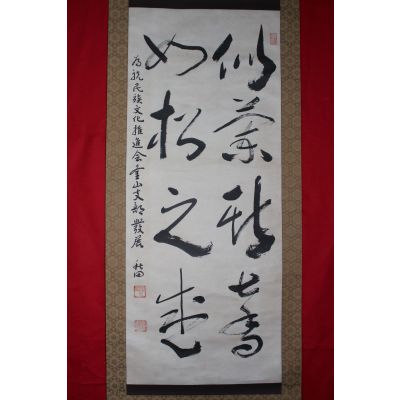 似蘭斯馨
如松之盛
為祝民族文化推進会釜山支部發展